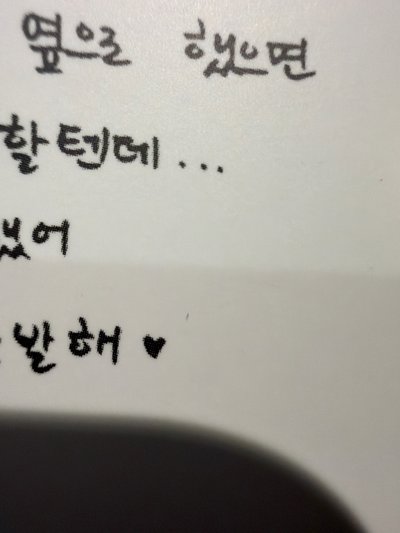 옆으로 했으면
할텐데...
했어
발해 ♥